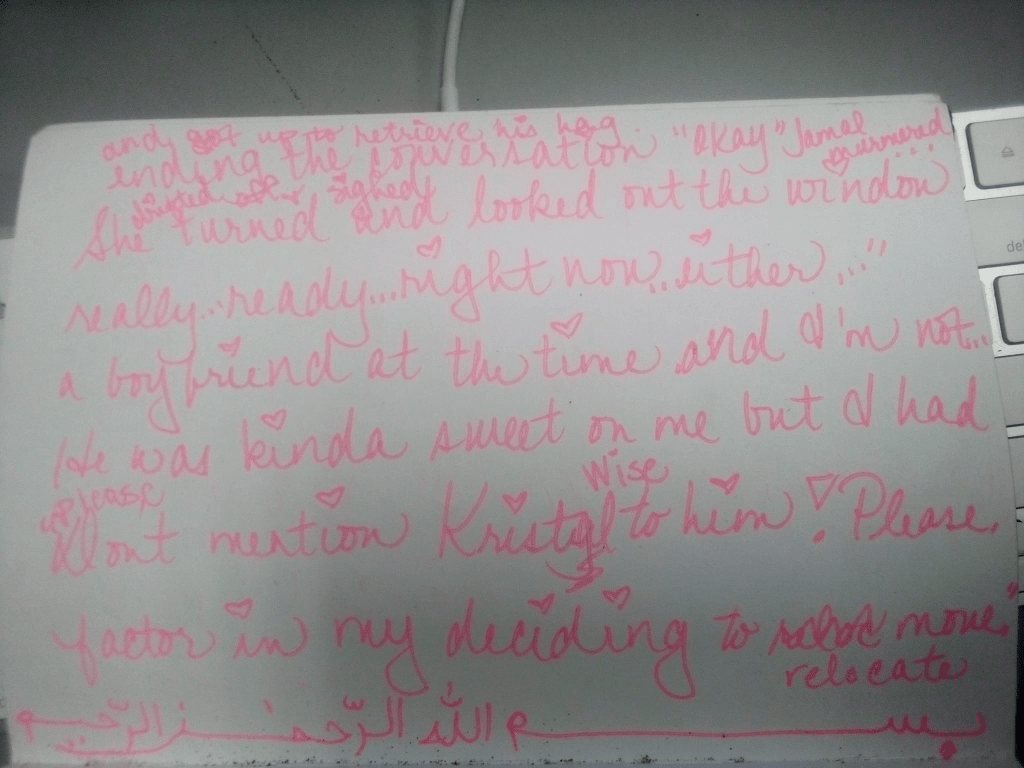 andy got up to retrieve his bag
ending the conversation. "okay" Jamal
murmured...
drifted off & sighed
She turned and looked out the window
really...ready...right now...either..."
a boyfriend at the time and I'm not...
He was kinda sweet on me but I had
please wise
dont mention Kristal to him! Please.
factor in my deciding to move."
relocate
بســـــم الله الرّحمٰـــن الرّحـــيم